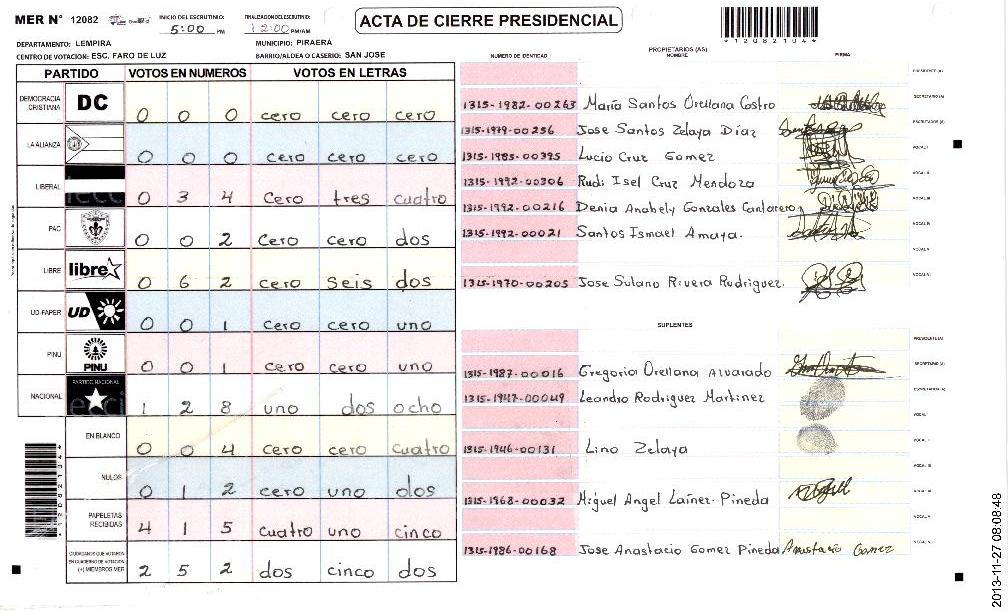 MER N° 12082 INICIO DEL ESCRUTINIO: 5:00 PM FINALIZACION DEL ESCRUTINIO: 12:00 PM/AM
ACTA DE CIERRE PRESIDENCIAL
*12082104*
DEPARTAMENTO: LEMPIRA MUNICIPIO: PIRAERA
CENTRO DE VOTACION: ESC. FARO DE LUZ BARRIO/ALDEA O CASERIO: SAN JOSE
PARTIDO VOTOS EN NUMEROS VOTOS EN LETRAS
DEMOCRACIA CRISTIANA DC 0 0 0 cero cero cero
LA ALIANZA 0 0 0 cero cero cero
LIBERAL 0 3 4 cero tres cuatro
PAC 0 0 2 cero cero dos
LIBRE libre 0 6 2 cero seis dos
UD-FAPER UD 0 0 1 cero cero uno
PINU PINU 0 0 1 cero cero uno
NACIONAL PARTIDO NACIONAL 1 2 8 uno dos ocho
EN BLANCO 0 0 4 cero cero cuatro
NULOS 0 1 2 cero uno dos
PAPELETAS RECIBIDAS 4 1 5 cuatro uno cinco
CIUDADANOS QUE VOTARON EN CUADERNO DE VOTACION (+) MIEMBROS MER 2 5 2 dos cinco dos
PROPIETARIOS (AS)
NUMERO DE IDENTIDAD NOMBRE FIRMA
PRESIDENTE (A)
1315-1982-00263 María Santos Orellana Castro SECRETARIO (A)
1315-1979-00256 Jose Santos Zelaya Díaz ESCRUTADOR (A)
1315-1985-00395 Lucio Cruz Gomez VOCAL I
1315-1992-00306 Rudi Isel Cruz Mendoza VOCAL II
1315-1992-00216 Denia Anabely Gonzales Cantarero VOCAL III
1315-1992-00021 Santos Ismael Amaya. VOCAL IV
VOCAL V
1315-1970-00205 Jose Sulano Rivera Rodriguez. VOCAL VI
SUPLENTES
PRESIDENTE (A)
1315-1987-00016 Gregoria Orellana Alvarado SECRETARIO (A)
1315-1947-00049 Leandro Rodriguez Martinez ESCRUTADOR (A)
VOCAL I
1315-1946-00131 Lino Zelaya VOCAL II
VOCAL III
1315-1968-00032 Miguel Angel Laínez Pineda VOCAL IV
VOCAL V
1315-1986-00168 Jose Anastacio Gomez Pineda Anastacio Gomez VOCAL VI
*12082104*
2013-11-27 08:08:48